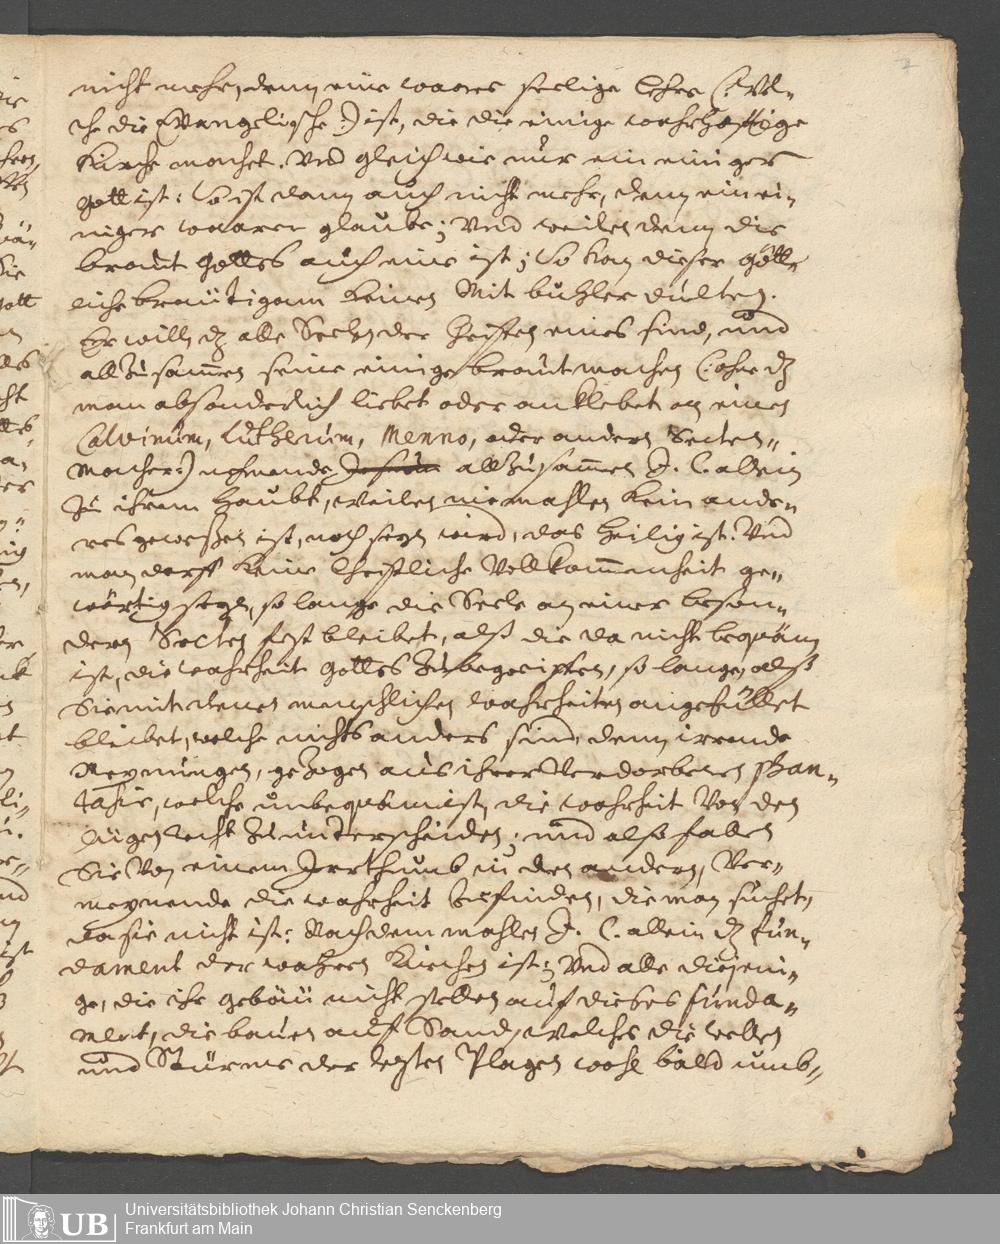 7
nicht mehr, denn eine waare seelige Lehr (: wel-
che die Evangelische :) ist, die die einige wahrhafftige
Kirche machet. Und gleich wie nur ein einiger
Gott ist: So ist dann auch nicht mehr, denn ein ei-
niger waarer glaube; Und weilen denn die
braut Gottes auch eine ist; So kan dieser Gött-
liche bräutigam keinen Mit buhler dulten.
Er will, dz alle Seelen der Christen eines sind, und
allzusammen seine einige braut machen (: ohne dz
man absonderlich liebet oder anklebet an einen
Calvinum, Lutherum, Menno, oder andern Secten-
macher :) nehmende allzusammen J. C. allein
zu ihrem Haubt, weilen niemahlen kein ande-
res geweßen ist, noch seyn wird, das heilig ist. Und
man darff keine Christliche Vollkommenheit ge-
wärtig seyn, so lange die Seele an einer beson-
dern Secten fest bleibet, alß die da nicht bequäm
ist, die wahrheit Gottes zu begreiffen, so lange, alß
Sie mit denen menschlichen wahrheiten angefüllet
bleibet, welche nichts anders sind, denn irrende
Meynungen, gezogen aus ihrer Verdorbenen Phan-
tasie, welche unbequäm ist, die wahrheit Von den
Lügen recht zu unterscheiden; und also fallen
Sie Von einem Irrthumb in den andern, Ver-
meynende die wahrheit zu finden, die man suchet,
da sie nicht ist: Nachdemmahlen J. C. allein dz fun-
dament der wahren Kirchen ist; Und alle diejeni-
ge, die ihr gebäu nicht stellen auf dieses funda-
ment, die bauen auf Sand, welches die wellen
und Stürme der lezten Plagen wohl bald umb-
UB
Universitätsbibliothek Johann Christian Senckenberg
Frankfurt am Main